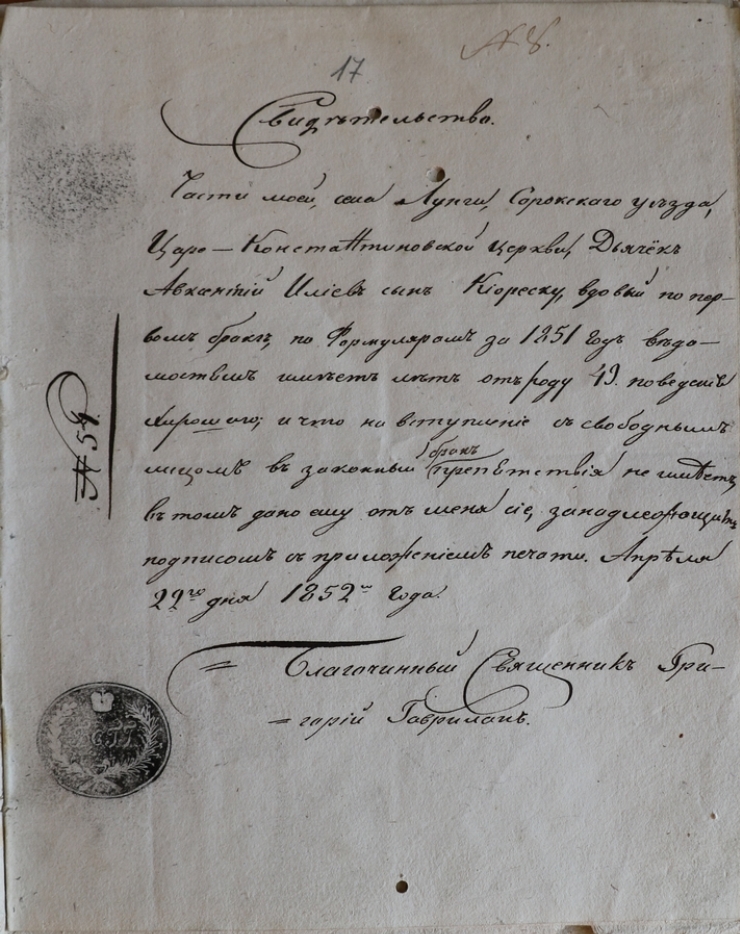 № 8.
17
Свидѣтельство.
Части моей, села Лунги, Сорокскаго уѣзда,
Царо-Константиновской церкви, Дьячёкъ
Авксентій Иліевъ сынъ Кіореску, вдовый по пер-
вомъ бракѣ, по Формулярамъ за 1851 годъ вѣдо-
мостямъ имѣетъ лѣтъ отъ роду 43. поведенія
хорошаго; и что на вступленіе съ свободнымъ
лицомъ въ законный бракъ препѣтствія не имѣетъ,
въ томъ дано ему отъ меня сіе, за надлежащимъ
подписомъ съ приложеніемъ печати. Апрѣля
22го дня 1852го года.
Благочинный Священникъ Гри-
=горій Гавриланъ.
№ 54.